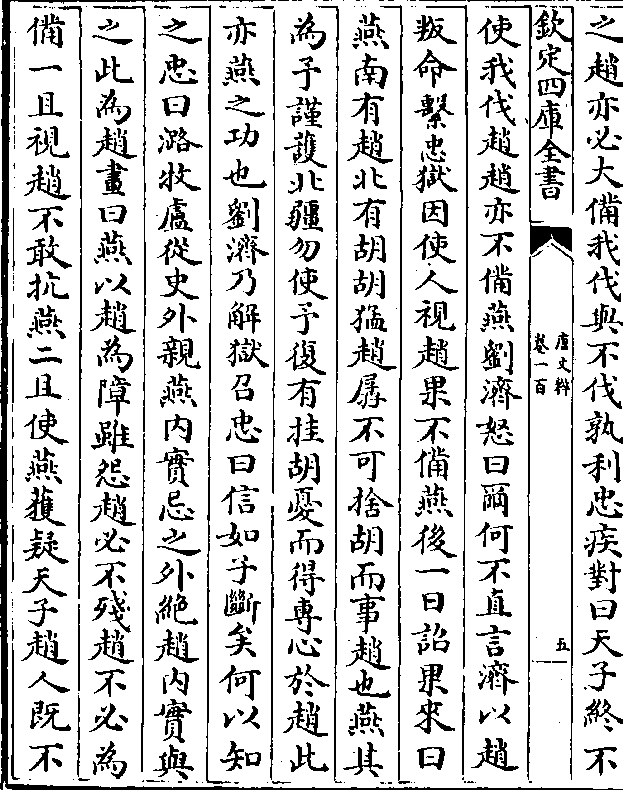 之趙亦必大備我伐與不伐孰利忠疾對曰天子終不
欽定四庫全書
唐文粹
卷一百
五
使我伐趙趙亦不備燕劉濟怒曰爾何不直言濟以趙
叛命繫忠獄因使人視趙果不備燕後一日詔果來曰
燕南有趙北有胡胡猛趙孱不可捨胡而事趙也燕其
為予謹護北疆勿使予復有挂胡憂而得專心於趙此
亦燕之功也劉濟乃解獄召忠曰信如子斷矣何以知
之忠曰潞牧盧從史外親燕內實忌之外絶趙內實與
之此為趙畫曰燕以趙為障雖怨趙必不殘趙不必為
備一且視趙不敢抗燕二且使燕獲疑天子趙人既不